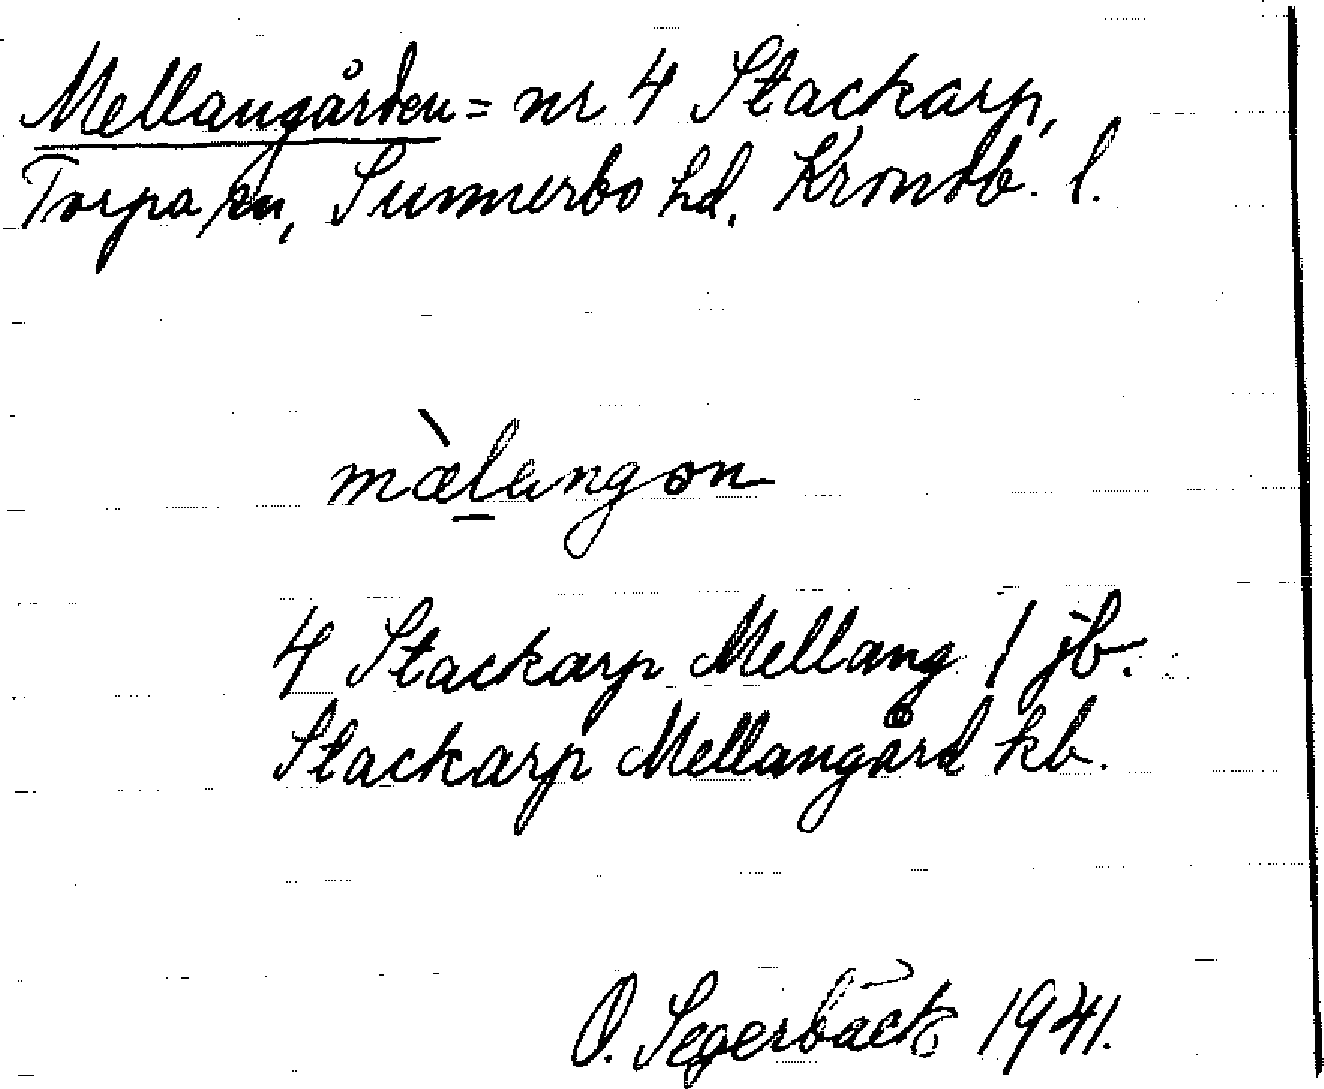 Mellangården = nr 4 Stackarp,
Torpa sn, Sunnerbo hd, Kronob. l.
mæ̀l̲angøn
4 Stackarp Mellang 1 jb.
Stackarp Mellangård kb.
O. Segerbäck 1941.